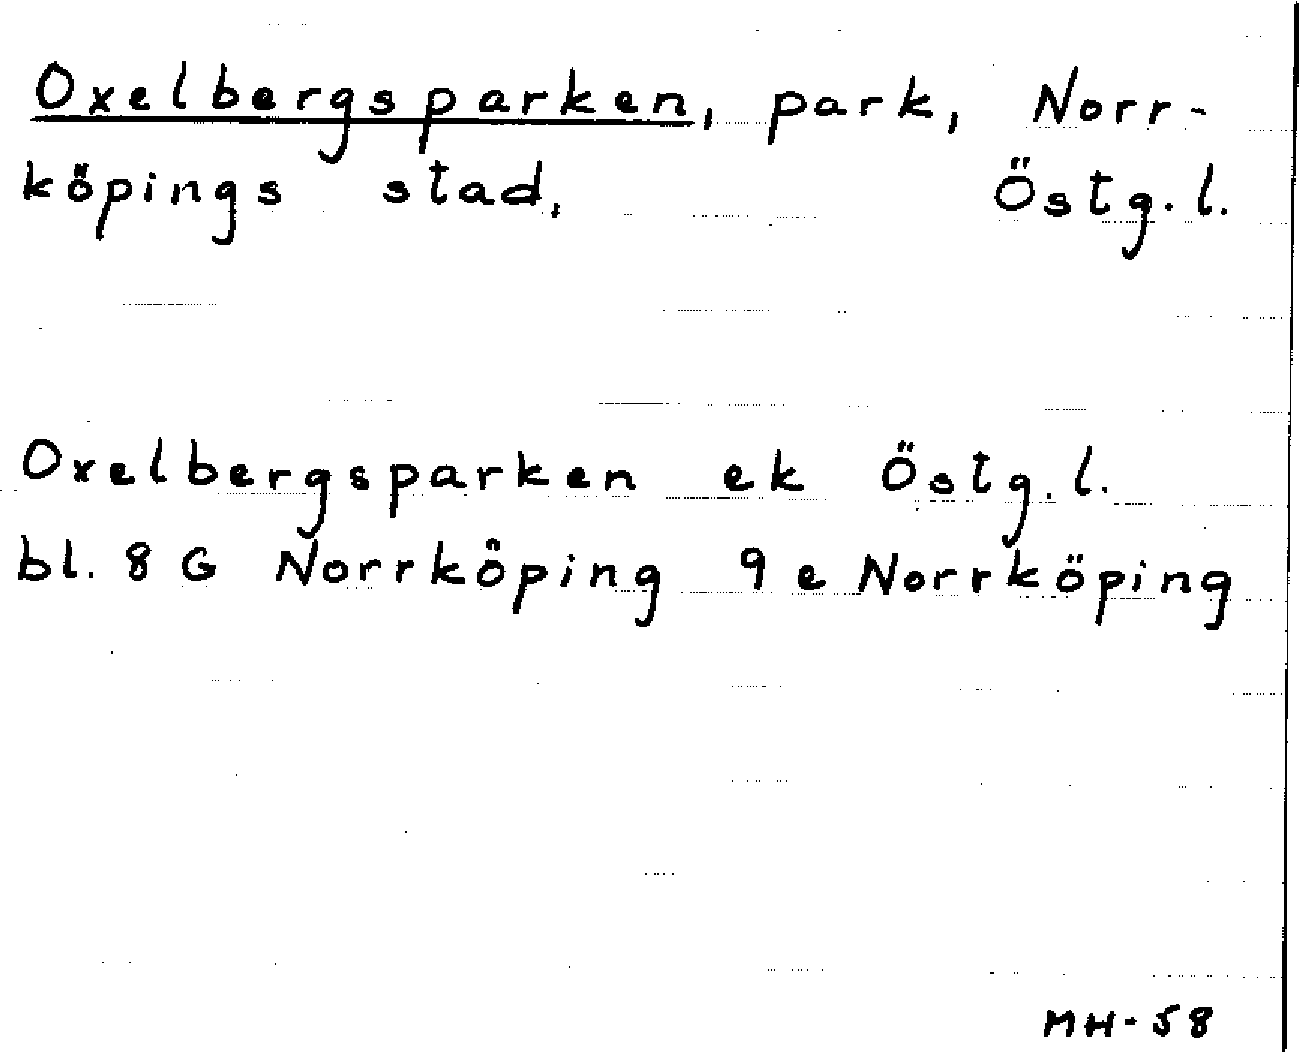 Oxelbergsparken, park, Norr-
köpings stad, Östg.l.
Oxelbergsparken ek Östg.l.
bl. 8 G Norrköping 9 e Norrköping
MH-58